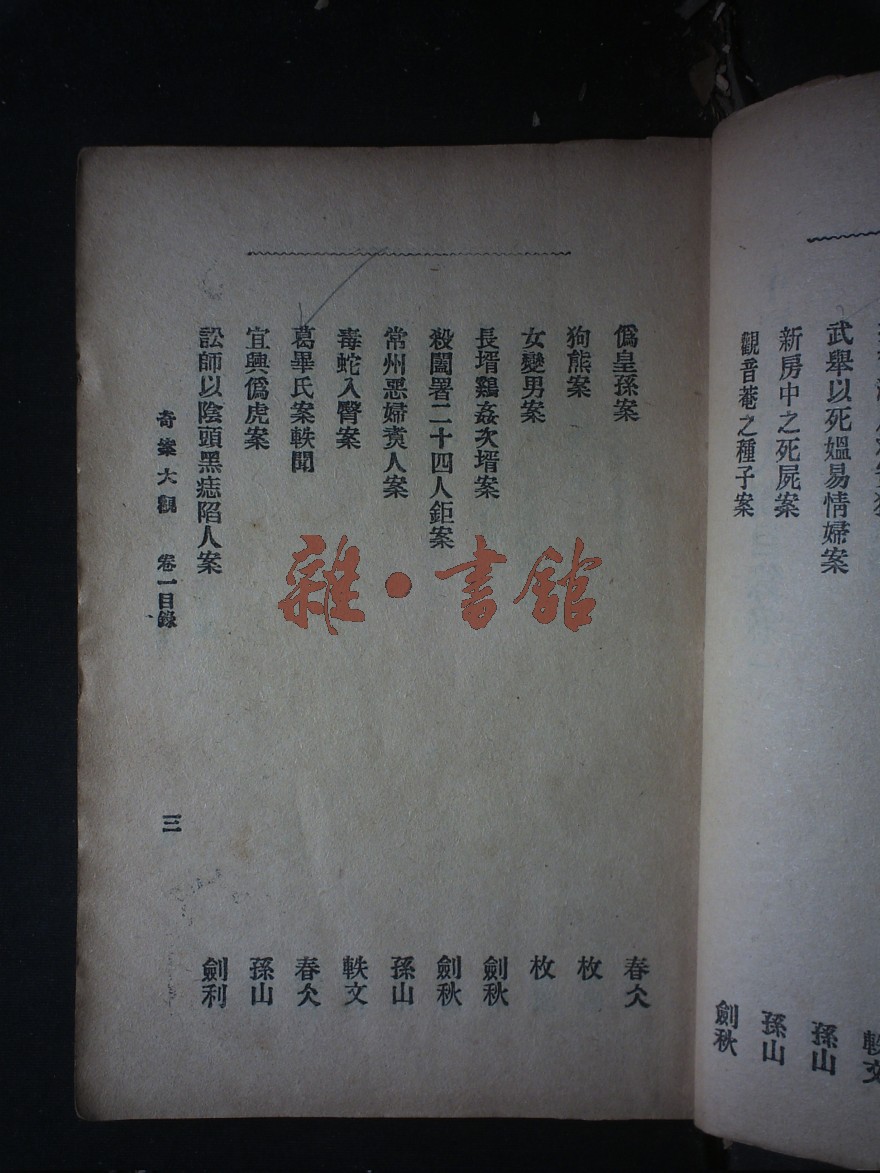 武舉以死媼易情婦案 孫山
新房中之死屍案 孫山
觀音菴之種子案 劍秋
僞皇孫案 春仌
狗熊案 枚
女變男案 枚
長壻鷄姦次壻案 劍秋
殺闔署二十四人鉅案 劍秋
常州惡婦賣人案 孫山
毒蛇入臀案 軼文
葛畢氏案軼聞 春仌
宜興僞虎案 孫山
訟師以陰頭黑痣陷人案 劍利
奇案大觀 卷一目錄 三
雜·書館